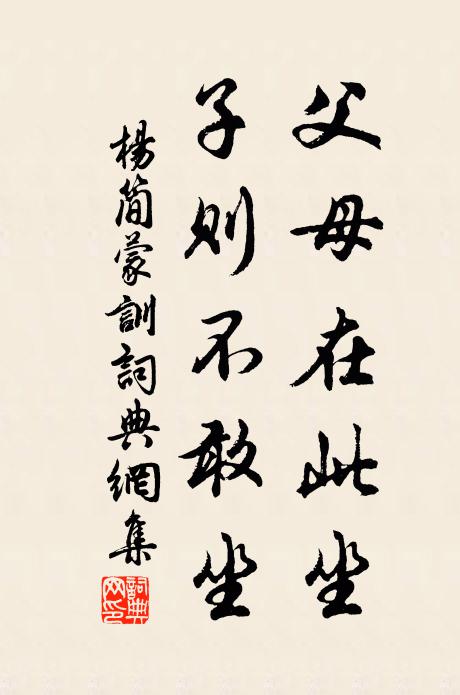 父母在此坐
子則不敢坐
楊簡蒙訓詞典網集
詞典